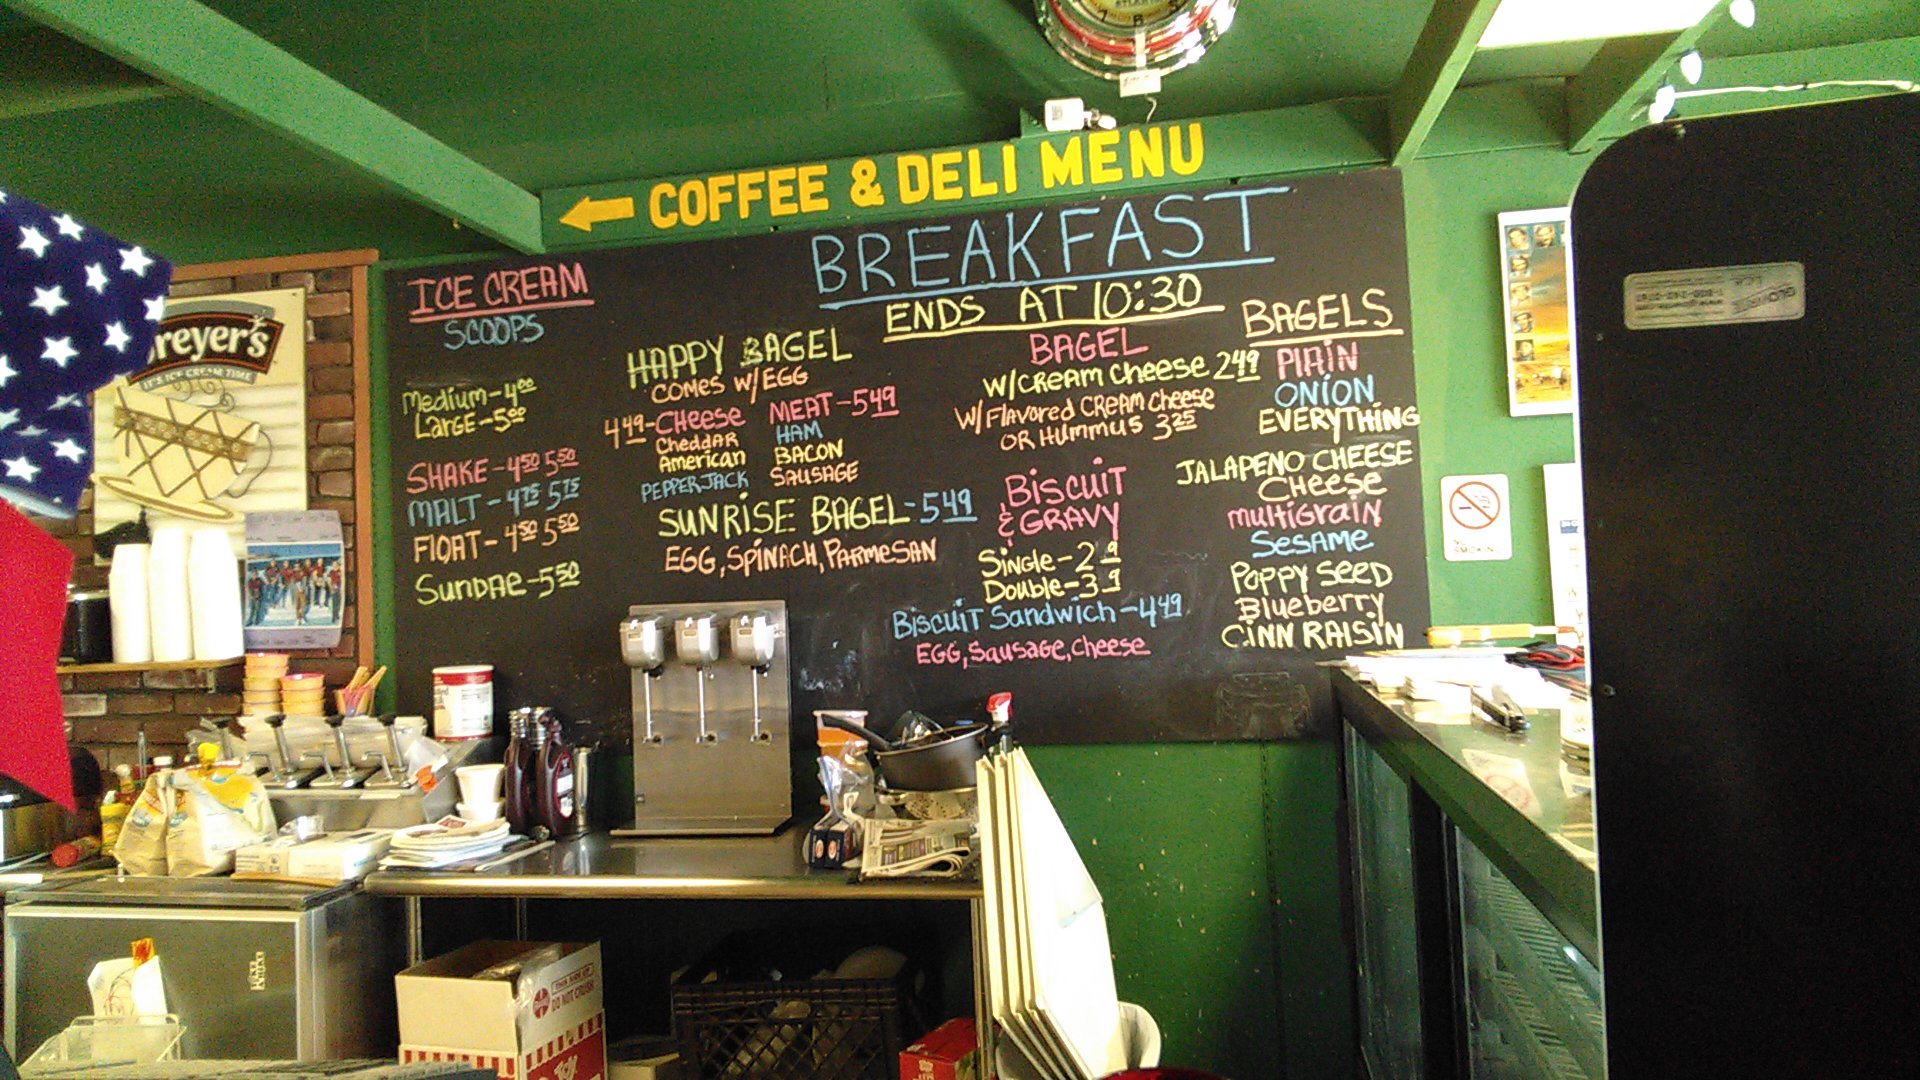 COFFEE & DELI MENU
BREAKFAST
ENDS AT 10:30
ICE CREAM
SCOOPS
Medium - 4.00
Large - 5.00
SHAKE - 4.50 5.50
MALT - 4.75 5.75
FLOAT - 4.50 5.50
SUNDAE - 5.50
HAPPY BAGEL
COMES W/ EGG
4.49 - CHEESE
CHEDDAR
AMERICAN
PEPPER JACK
MEAT - 5.49
HAM
BACON
SAUSAGE
SUNRISE BAGEL - 5.49
EGG, SPINACH, PARMESAN
BAGEL
W/ CREAM CHEESE 2.49
W/ FLAVORED CREAM CHEESE
OR HUMMUS 3.25
BISCUIT
& GRAVY
Single - 2
Double - 3
BISCUIT SANDWICH - 4.49
EGG, SAUSAGE, CHEESE
BAGELS
PLAIN
ONION
EVERYTHING
JALAPENO CHEESE
CHEESE
MULTIGRAIN
SESAME
POPPY SEED
BLUEBERRY
CINN RAISIN
reyer's
IT'S ICE CREAM TIME
NO
SMOKING
DO NOT CRUSH